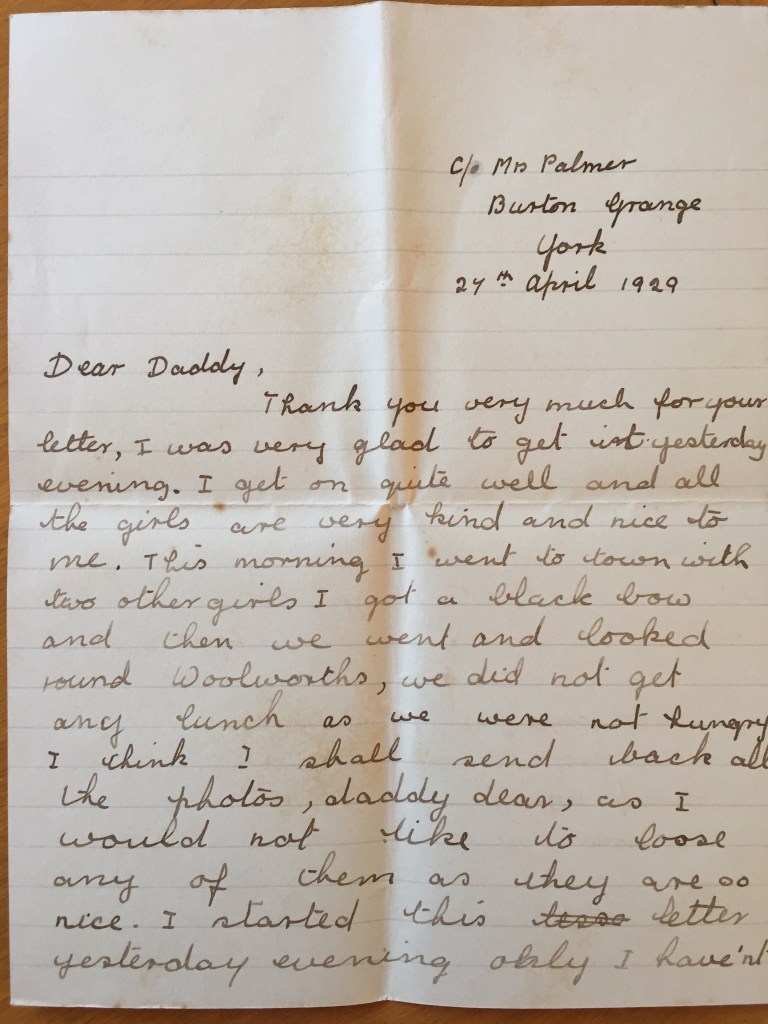 C/o Mrs Palmer
Burton Grange
York
27th April 1929
Dear Daddy,
Thank you very much for your
letter, I was very glad to get it yesterday
evening. I get on quite well and all
the girls are very kind and nice to
me. This morning I went to town with
two other girls I got a black bow
and then we went and looked
round Woolworths, we did not get
any lunch as we were not hungry
I think I shall send back all
the photos, daddy dear, as I
would not like to loose
any of them as they are so
nice. I started this letter
yesterday evening okly I have'nt